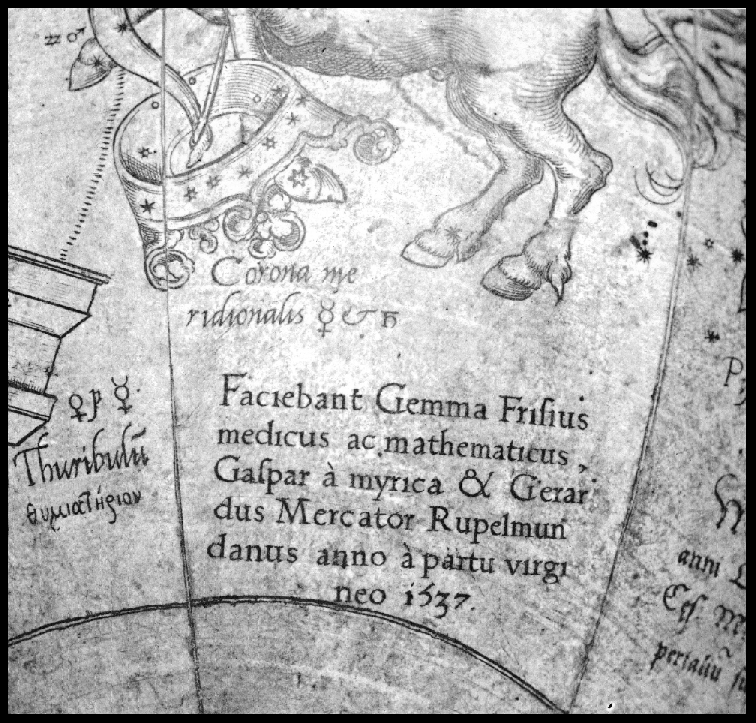 ♒ ♂
Corona me
ridionalis ☿ & ♄
♀ ☿
Thuribulū
θυμιατήριον
Faciebant Gemma Friſius
medicus ac mathematicus,
Gaſpar à myrica & Gerar
dus Mercator Rupelmun
danus anno à partu virgi
neo 1537.
anni